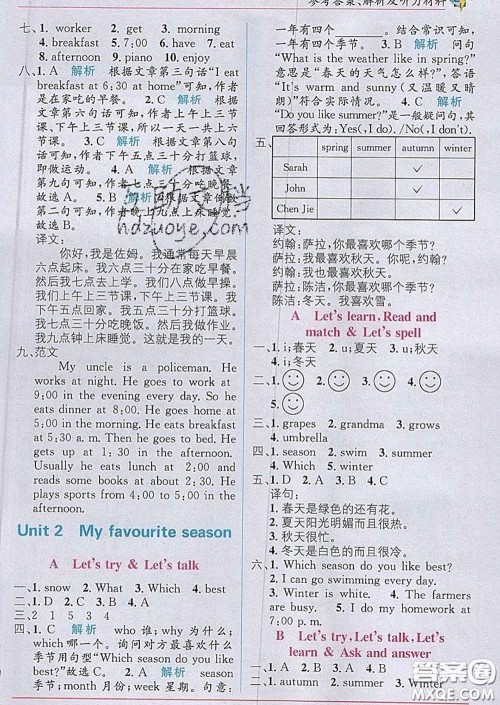 参考答案、解析及听力材料
七、1. worker 2. get 3. morning
4. breakfast 5. eat 6. home 7. eat
8. afternoon 9. piano 10. enjoy
八、1. A 解析 根据文章第三句话“I eat
breakfast at 6:30 at home”可知,作者
是在家吃的早餐。 2. C 解析 根据文
章第六句话可知,作者上午上三节
课,下午上三节课,所以一天一共上六
节课。 3. C 解析 根据文章第八句
话可知,作者下午五点三十分打篮球,
即做运动。 4. A 解析 根据文章
第九句可知,
故选 A。 5. B 解析
第二句可知,
故选 B。
译文:
你好,我是佐姆。我通常每天早晨
六点起床。我六点三十分在家吃早餐。
然后我七点去上学。我们八点做早操。
我们上午上三节课,下午上三节课。然
后我七点回家。我五点三十分打篮球。
我六点三十分吃晚饭。然后我做作业。
我九点钟上床睡觉。这是我的一天。
九、范文
My uncle is a policeman. He
works at night. He goes to work at
9:00 in the evening every day. So he
eats dinner at 8:00. He goes home at
5:00 in the morning. He eats breakfast
at 5:30 a. m. Then he goes to bed. He
gets up at 1:00 in the afternoon.
Usually he eats lunch at 2:00 and
reads some books at about 2:30. He
plays sports from 4:00 to 5:00 in the
afternoon.
Unit 2 My favourite season
A Let's try & Let's talk
一、1. snow 2. What 3. Which 4. best
二、1. D 2. C 3. B 4. A
三、2 1 5 3 4
四、1. C 解析 who 谁;why 为什么;
which 哪一个。询问对方最喜欢什么
季节用句型“Which season do you like
best?”故选 C。 2. A 解析 season
季节;month 月份;week 星期。句意:
一年有四个____。结合常识可知,
一年有四个季节。 3. B 解析 问句
“What is the weather like in spring?”
意思是“春天的天气怎么样?”,答语
“It's warm and sunny (又温暖又晴
朗)”符合实际情况。 4. C 解析
“Do you like summer?”是一般疑问句,其
回答形式为:Yes(,I do). /No(,I don't).
五、 spring summer autumn winter
Sarah ✓
John ✓
Chen Jie ✓
译文:
约翰:萨拉,你最喜欢哪个季节?
萨拉:我最喜欢秋天。你呢,约翰?
约翰:我也喜欢秋天。
萨拉:陈洁,你最喜欢哪个季节?
陈洁:冬天。我喜欢雪。
A Let's learn, Read and
match & Let's spell
一、1. i;春天 2. u;夏天 3. u;秋天
4. i;冬天
二、1. 2. 3. 4.
三、1. grapes 2. grandma 3. grows
4. umbrella
四、1. season 2. swim 3. summer
4. Which 5. winter
五、1. D 2. C 3. B 4. A
译句:
1. 春天是绿色的还有花。
2. 夏天阳光明媚而且很热。
3. 秋天很忙。
4. 冬天是白色的。
六、1. Which season do you like best?
2. I can go swimming every day.
3. What about winter? 4. The farmers
are busy. 5. I do my homework at
7:00 p. m.
B Let's try, Let's talk, Let's
learn & Ask and answer
一、1. autumn 2. summer 3. winter
ndzuoye.com
答案圈
MXQE.COM